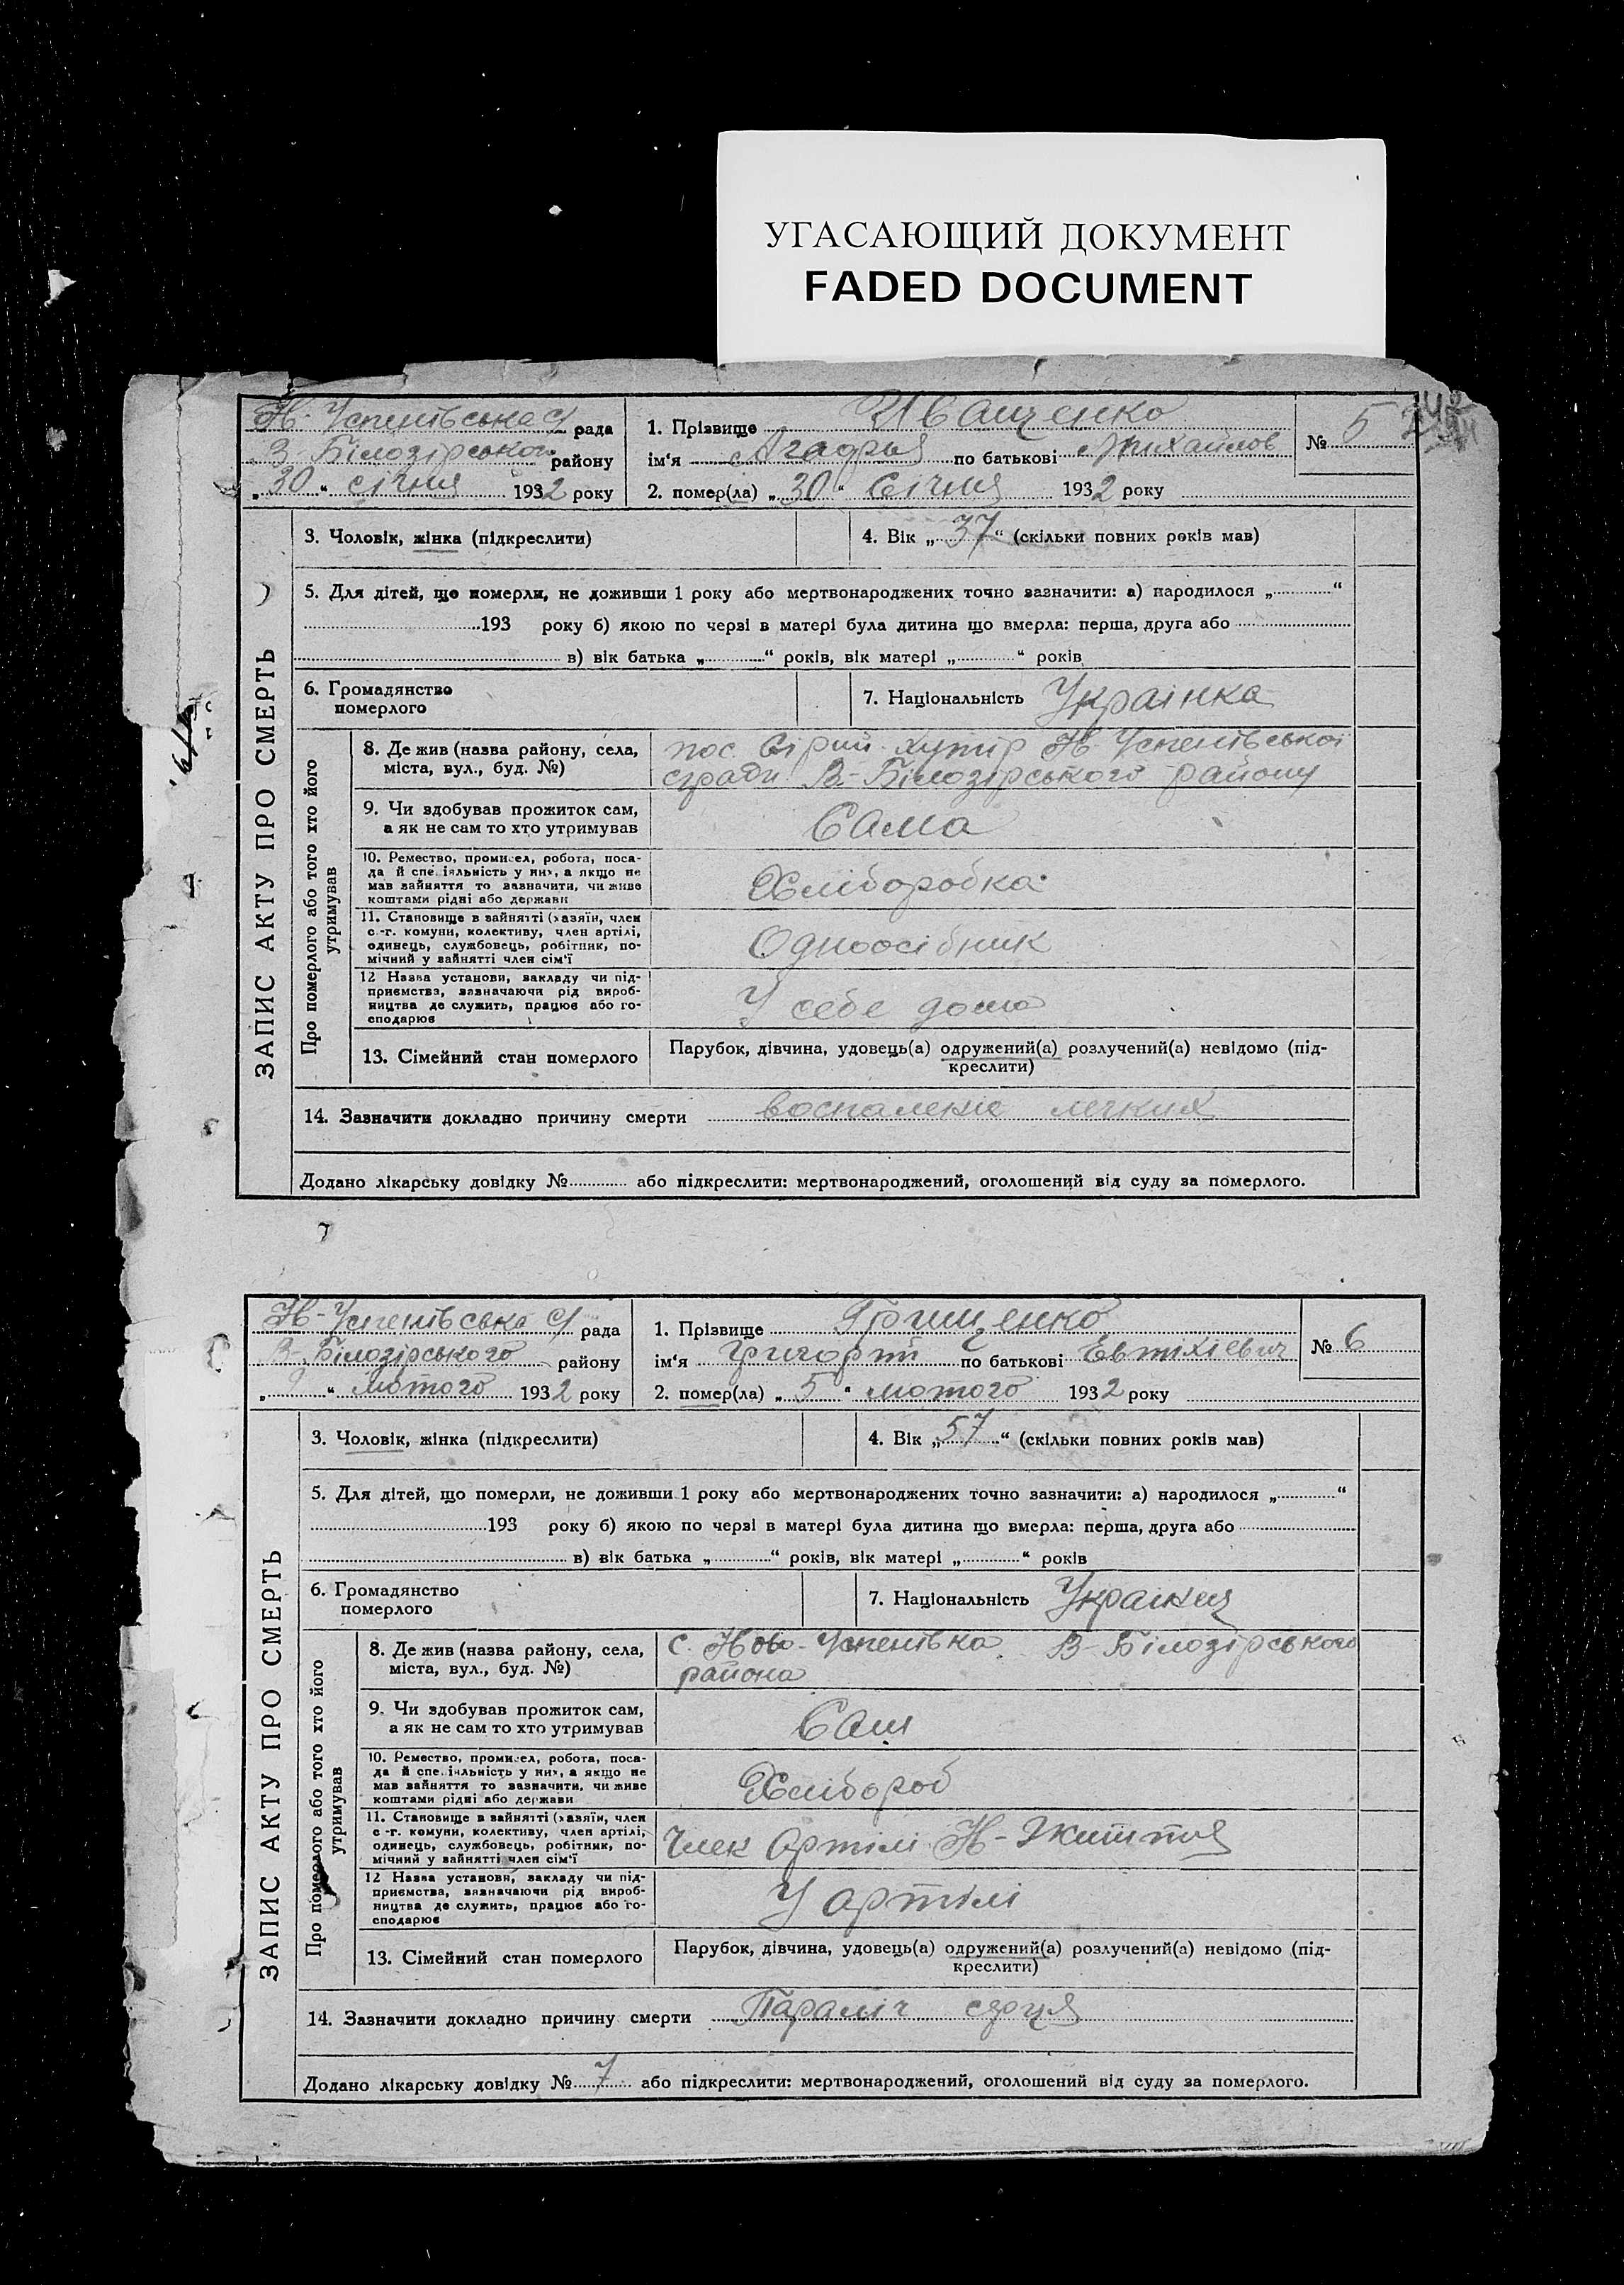 УГАСАЮЩИЙ ДОКУМЕНТ
FADED DOCUMENT
Н-Успенівська с/ рада
В-Білозірського району
„30“ січня 1932 року
1. Прізвище Иващенко
ім‘я Агафья по батькові Михайлов
2. помер(ла) „30“ Січня 1932 року
№ 5
ЗАПИС АКТУ ПРО СМЕРТЬ
3. Чоловік, жінка (підкреслити)
4. Вік „37“ (скільки повних років мав)
5. Для дітей, що померли, не доживши 1 року або мертвонароджених точно зазначити: а) народилося „ “
193 року б) якою по черзі в матері була дитина що вмерла: перша, друга або
в) вік батька „ “ років, вік матері „ “ років
6. Громадянство
померлого
7. Національність Украінка
Про померлого або того хто його
утримував
8. Де жив (назва району, села,
міста, вул., буд. №)
пос. Сірий хутір Н-Успенівськоі
с/ради В-Білозірського району
9. Чи здобував прожиток сам,
а як не сам то хто утримував
Сама
10. Ремество, промисел, робота, поса-
да й спеціяльність у них, а якщо не
мав зайняття то зазначити, чи живе
коштами рідні або держави
Хліборобка
11. Становище в зайнятті (хазяїн, член
с.-г. комуни, колективу, член артілі,
одинець, службовець, робітник, по-
мічний у зайнятті член сім'ї
Одноосібник
12 Назва установи, закладу чи під-
приємства, зазначаючи рід вироб-
ництва де служить, працює або го-
сподарює
У себе дома
13. Сімейний стан померлого
Парубок, дівчина, удовець(а) одружений(а) розлучений(а) невідомо (під-
креслити)
14. Зазначити докладно причину смерти воспаление легких
Додано лікарську довідку № або підкреслити: мертвонароджений, оголошений від суду за померлого.
Н-Успенівська с/ рада
В-Білозірського району
„ “ лютого 1932 року
1. Прізвище Грищенко
ім‘я Григорій по батькові Евтіхіевич
2. помер(ла) „5“ лютого 1932 року
№ 6
ЗАПИС АКТУ ПРО СМЕРТЬ
3. Чоловік, жінка (підкреслити)
4. Вік „57“ (скільки повних років мав)
5. Для дітей, що померли, не доживши 1 року або мертвонароджених точно зазначити: а) народилося „ “
193 року б) якою по черзі в матері була дитина що вмерла: перша, друга або
в) вік батька „ “ років, вік матері „ “ років
6. Громадянство
померлого
7. Національність Украінец
Про померлого або того хто його
утримував
8. Де жив (назва району, села,
міста, вул., буд. №)
с. Ново-Успенівка В-Білозірського
района
9. Чи здобував прожиток сам,
а як не сам то хто утримував
Сам
10. Ремество, промисел, робота, поса-
да й спеціяльність у них, а якщо не
мав зайняття то зазначити, чи живе
коштами рідні або держави
Хлібороб
11. Становище в зайнятті (хазяїн, член
с.-г. комуни, колективу, член артілі,
одинець, службовець, робітник, по-
мічний у зайнятті член сім'ї
Член Артілі Н-Життя
12 Назва установи, закладу чи під-
приємства, зазначаючи рід вироб-
ництва де служить, працює або го-
сподарює
У артілі
13. Сімейний стан померлого
Парубок, дівчина, удовець(а) одружений(а) розлучений(а) невідомо (під-
креслити)
14. Зазначити докладно причину смерти Параліч сэрця
Додано лікарську довідку № 7 або підкреслити: мертвонароджений, оголошений від суду за померлого.